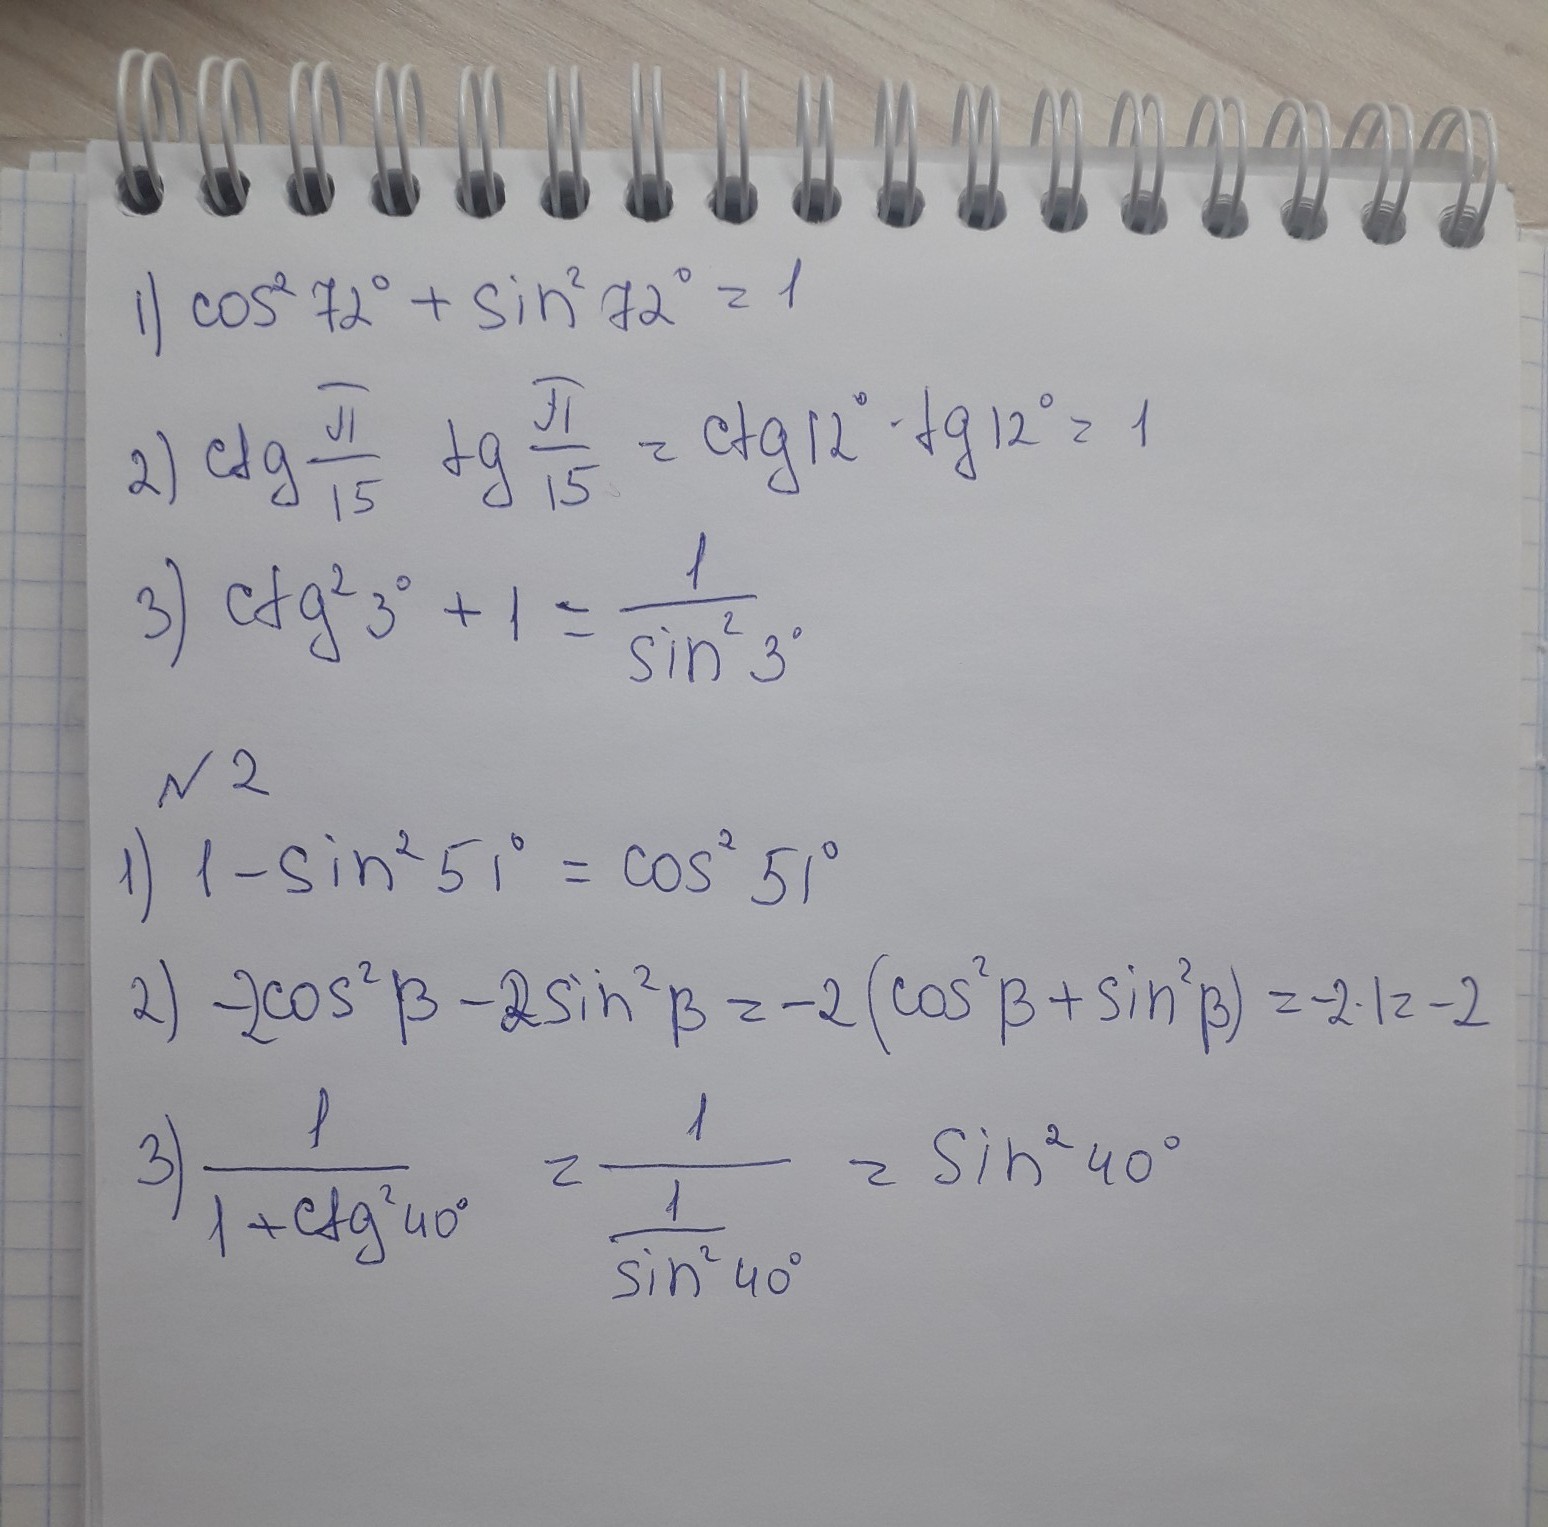 1) cos² 72° + sin² 72° = 1
2) ctg π/15 tg π/15 = ctg 12° · tg 12° = 1
3) ctg² 3° + 1 = 1/sin² 3°
N 2
1) 1 - sin² 51° = cos² 51°
2) -2cos² β - 2sin² β = -2 (cos² β + sin² β) = -2·1 = -2
3) 1/(1 + ctg² 40°) = 1/(1/sin² 40°) = sin² 40°